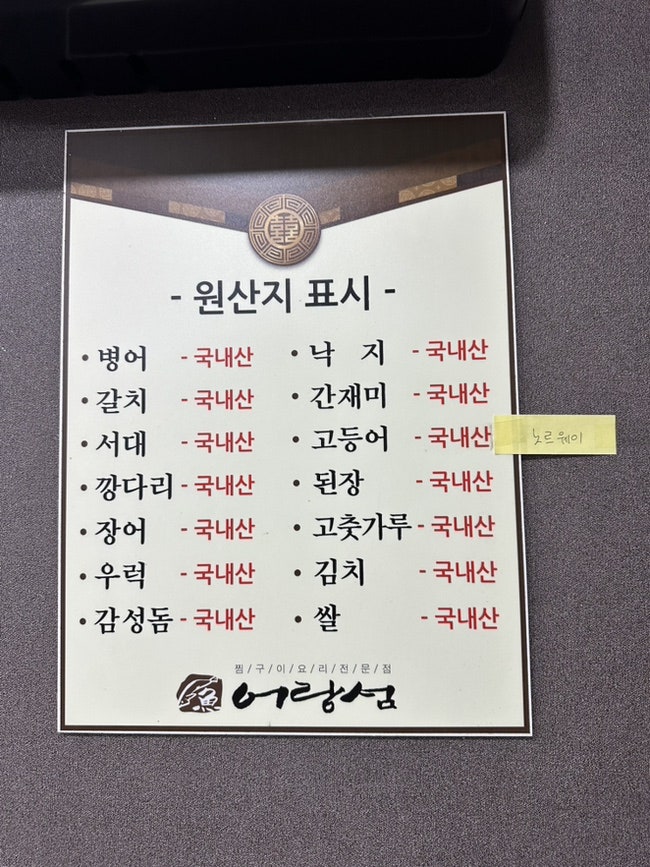 - 원산지 표시 -
• 병어 - 국내산
• 갈치 - 국내산
• 서대 - 국내산
• 깡다리 - 국내산
• 장어 - 국내산
• 우럭 - 국내산
• 감성돔 - 국내산
• 낙 지 - 국내산
• 간재미 - 국내산
• 고등어 - 국내산 노르웨이
• 된장 - 국내산
• 고춧가루 - 국내산
• 김치 - 국내산
• 쌀 - 국내산
찜/구/이/요/리/전/문/점
魚 어랑섬